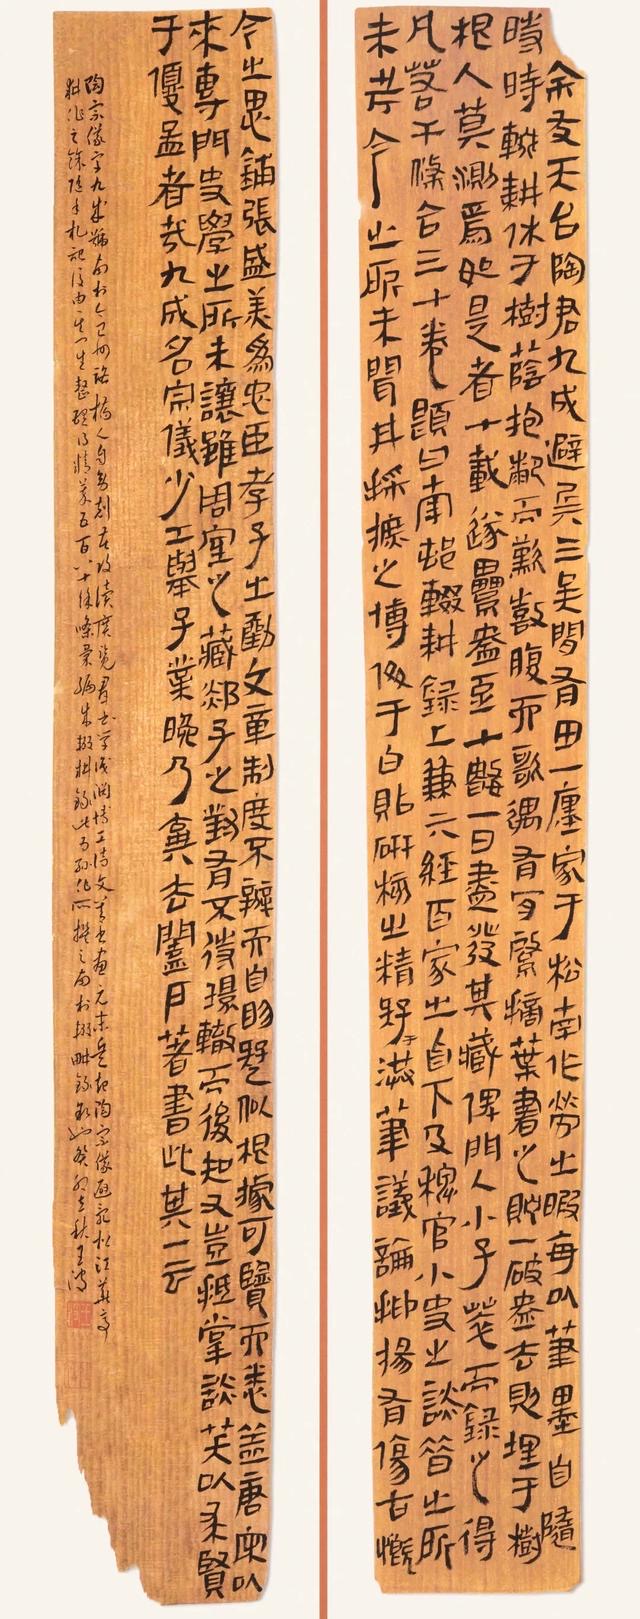 余友天台陶君九成避兵三吳間有田一廛家于松南作勞之暇每以筆墨自隨
時時輟耕休于樹蔭抱鄰而歎鼓腹而歌遇有肎綮摘葉書之貯一破盎去則埋于樹
根人莫測焉如是者十載遂纍盎至十數一日盡發其藏俾門人小子萃而錄之得
凡若干條合三十卷題曰南邨輟耕錄上兼六經百家之旨下及稗官小史之談昔之所
未考今之所未聞其採摭之博侈于白貼研核之精擬于洪筆議論抑揚有傷古慨
今之思鋪張盛美為忠臣孝子之勸文章制度不辨而自明疑似根據可覽而悉蓋唐宋以
來專門史學之所未讓雖周室之藏郯子之對有不待環轍而後知又豈抵掌談笑以求賢
于優孟者哉九成名宗儀少工舉子業晚乃棄去闔門著書此其一云
陶宗儀字九成號南村今台州路橋人自幼刻苦攻讀廣覽群書學識淵博工詩文善書畫元末兵起陶宗儀避亂松江華亭
耕作之餘隨手札記後由其學生整理得精萃五百八十餘條彙編成輟耕錄此為孫作所撰之南村輟耕錄敘也癸卯立秋王波